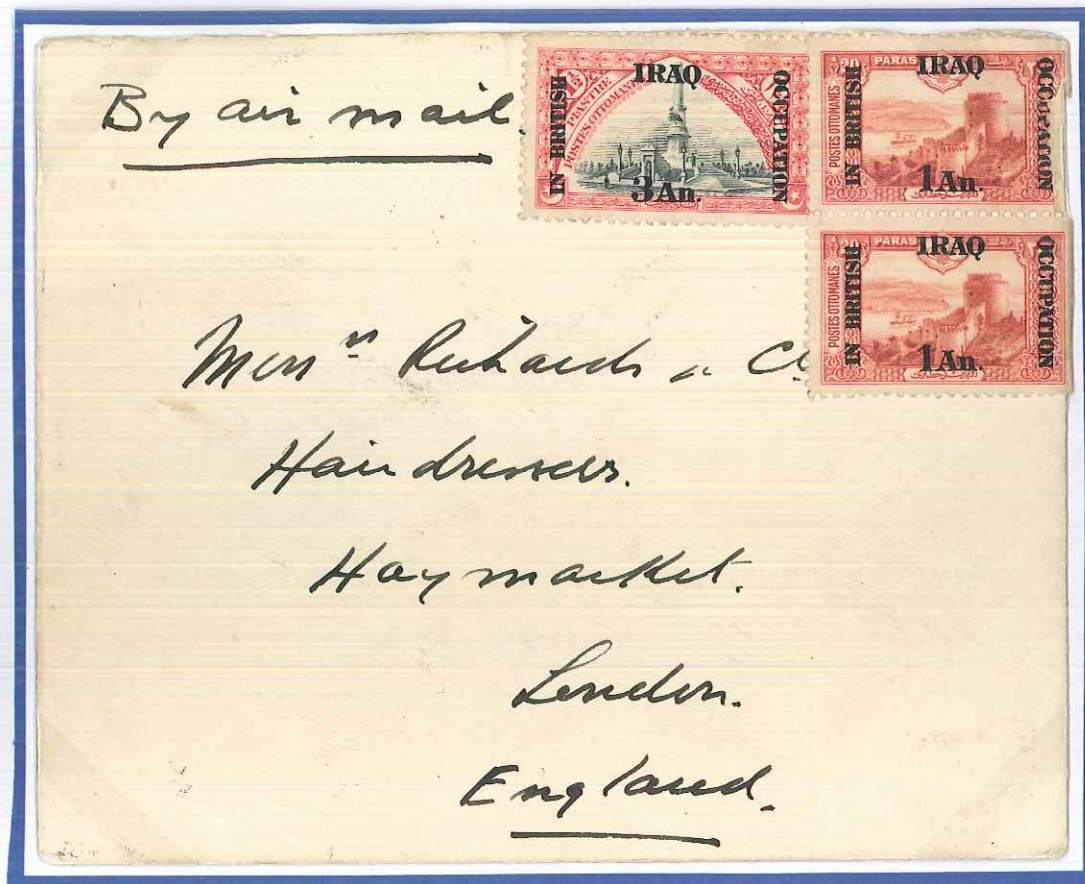 By air mail.
IRAQ
IN BRITISH
OCCUPATION
1½
PIASTRE
POSTES OTTOMANES
3 An.
PARAS
IRAQ
POSTES OTTOMANES
IN BRITISH
OCCUPATION
1 An.
20 PARAS
IRAQ
POSTES OTTOMANES
IN BRITISH
OCCUPATION
1 An.
Messrs Richards & Co
Hairdressers.
Haymarket.
London.
England.